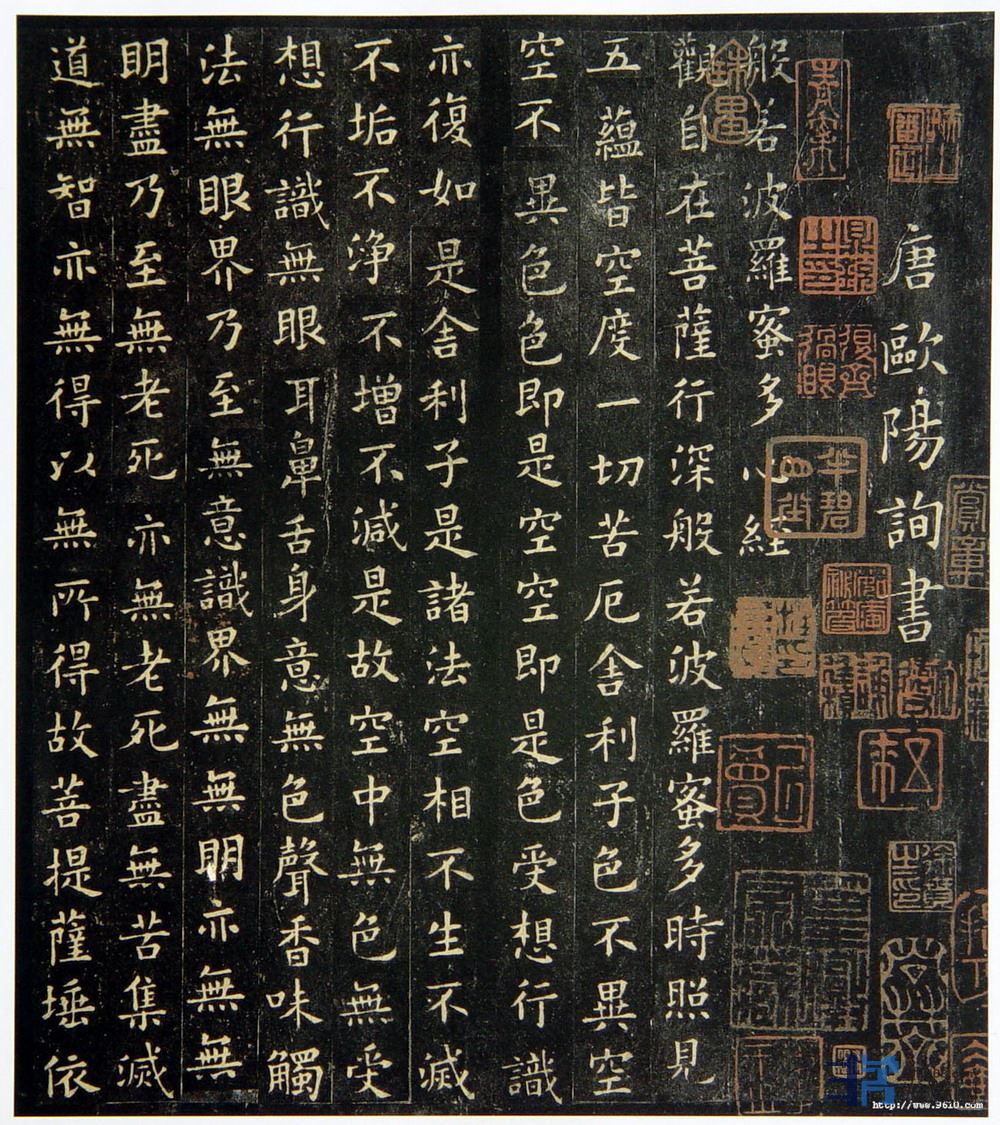 唐歐陽詢書
般若波羅蜜多心經
觀自在菩薩行深般若波羅蜜多時照見
五蘊皆空度一切苦厄舍利子色不異空
空不異色色即是空空即是色受想行識
亦復如是舍利子是諸法空相不生不滅
不垢不淨不增不減是故空中無色無受
想行識無眼耳鼻舌身意無色聲香味觸
法無眼界乃至無意識界無無明亦無無
明盡乃至無老死亦無老死盡無苦集滅
道無智亦無得以無所得故菩提薩埵依
http://www.9610.com